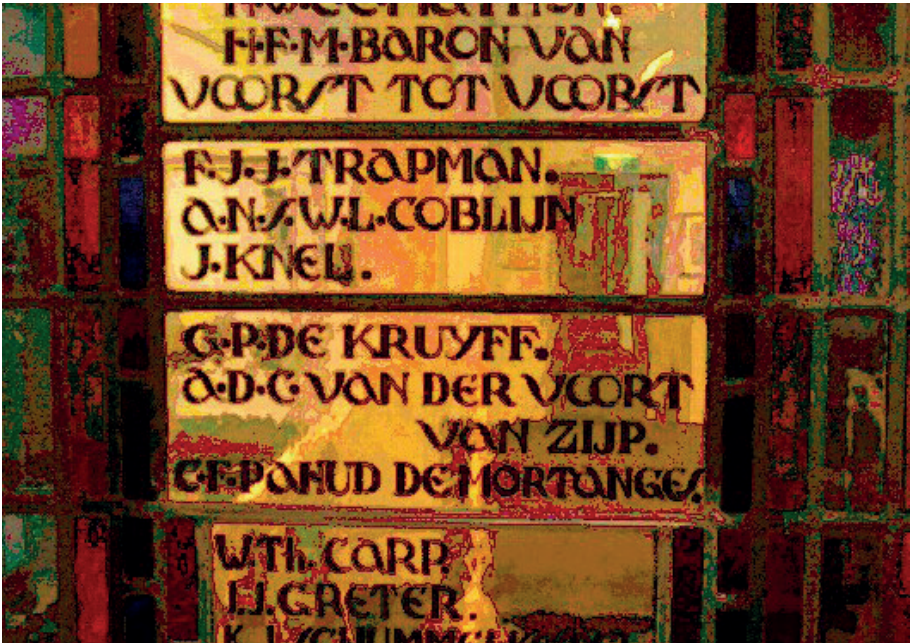 H·F·M·BARON VAN
VOORST TOT VOORST
F.J.J.TRAPMAN.
A.N.J.W.L.COBLIJN
J.KNEL.
G.P.DE KRUYFF.
A.D.C.VAN DER VOORT
VAN ZIJP.
C.F.PAHUD DE MORTANGES.
W.Th. CARP.
J.J.GRETER.